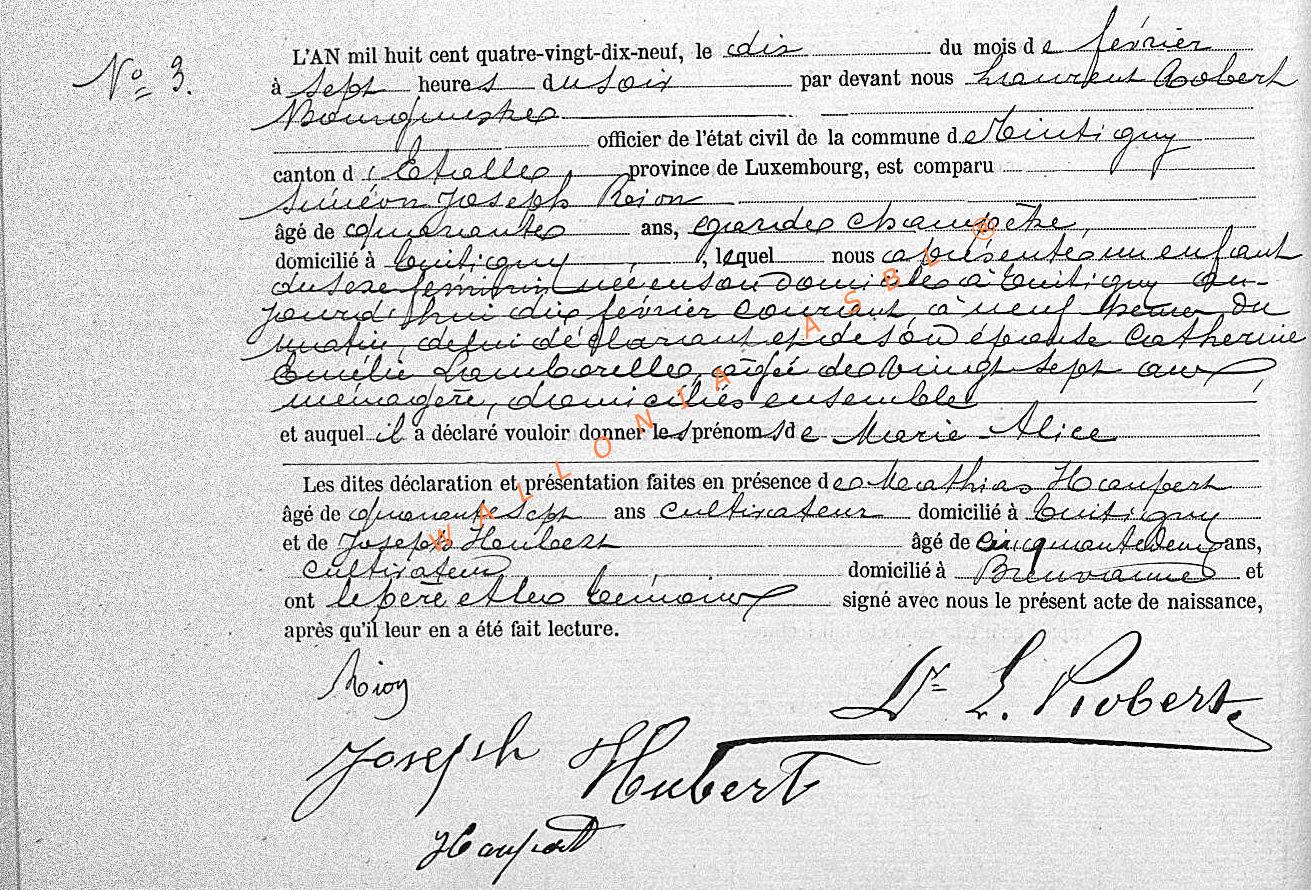 N° 3.
L'AN mil huit cent quatre-vingt-dix-neuf, le dix du mois de février
à sept heures du soir par devant nous Laurent Robert
Bourgmestre
officier de l'état civil de la commune de Tintigny
canton d'Etalle, province de Luxembourg, est comparu
Siméon Joseph Rion
âgé de quarante ans, garde champêtre,
domicilié à Tintigny, lequel nous a présenté un enfant
du sexe féminin née en son domicile à Tintigny au-
jourd'hui dix février courant, à neuf heures du
matin, de lui déclarant et de son épouse Catherine
Emélie Lamborelle, âgée de vingt sept ans
ménagère, domiciliés ensemble
et auquel il a déclaré vouloir donner les prénoms de Marie Alice
Les dites déclaration et présentation faites en présence de Mathias Haupert
âgé de quarante sept ans cultivateur domicilié à Tintigny
et de Joseph Hubert âgé de cinquante deux ans,
cultivateur domicilié à Breuvanne et
ont le père et les témoins signé avec nous le présent acte de naissance,
après qu'il leur en a été fait lecture.
Rion
Dr L. Robert.
Joseph Hubert
Haupert
WALLONIA ASBL ®